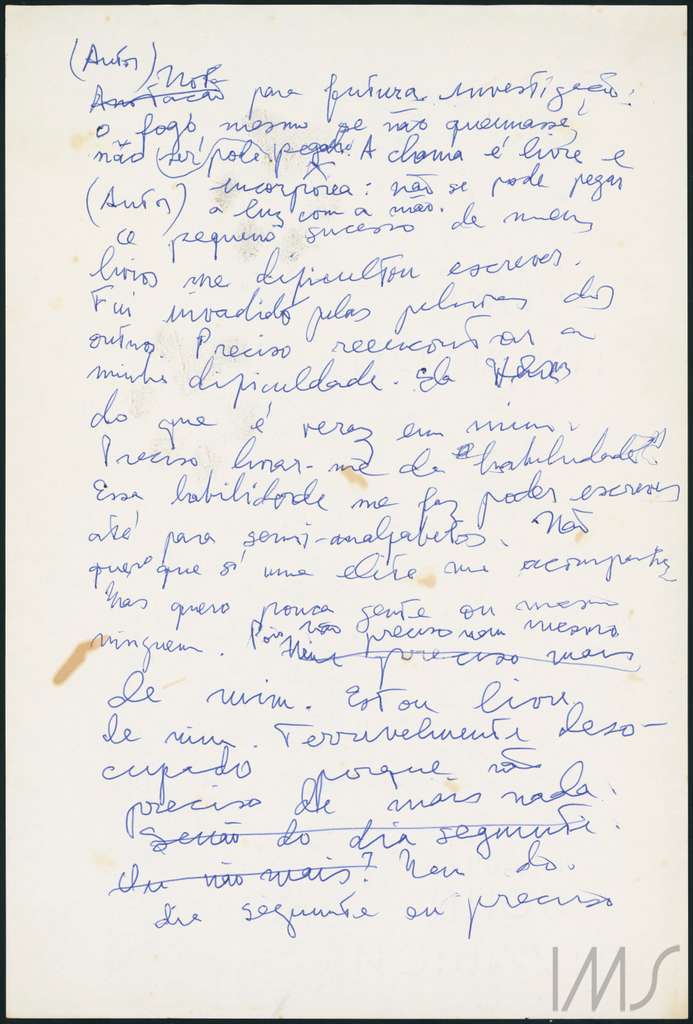 (Autor)
Nota
Anotação para futura investigação:
o fogo, mesmo se não queimasse,
não se pode pegar. A chama é livre e
incorpórea: não se pode pegar
(Autor) a luz com a mão.
O pequeno sucesso de meus
livros me dificultou escrever.
Fui invadido pelas palavras dos
outros. Preciso reencontrar a
minha dificuldade. Ela
do que é veraz em mim.
Preciso livrar-me da "habilidade".
Essa habilidade me faz poder escrever
até para semi-analfabetos. Não
quero que só uma elite me acompanhe
Mas quero pouca gente ou mesmo
ninguem. Pois não preciso nem mesmo
preciso mais
de mim. Estou livre
de mim. Terrivelmente deso-
cupado porque não
preciso de mais nada.
Senão do dia seguinte.
Ou não mais? Nem do
dia seguinte eu preciso
IMS